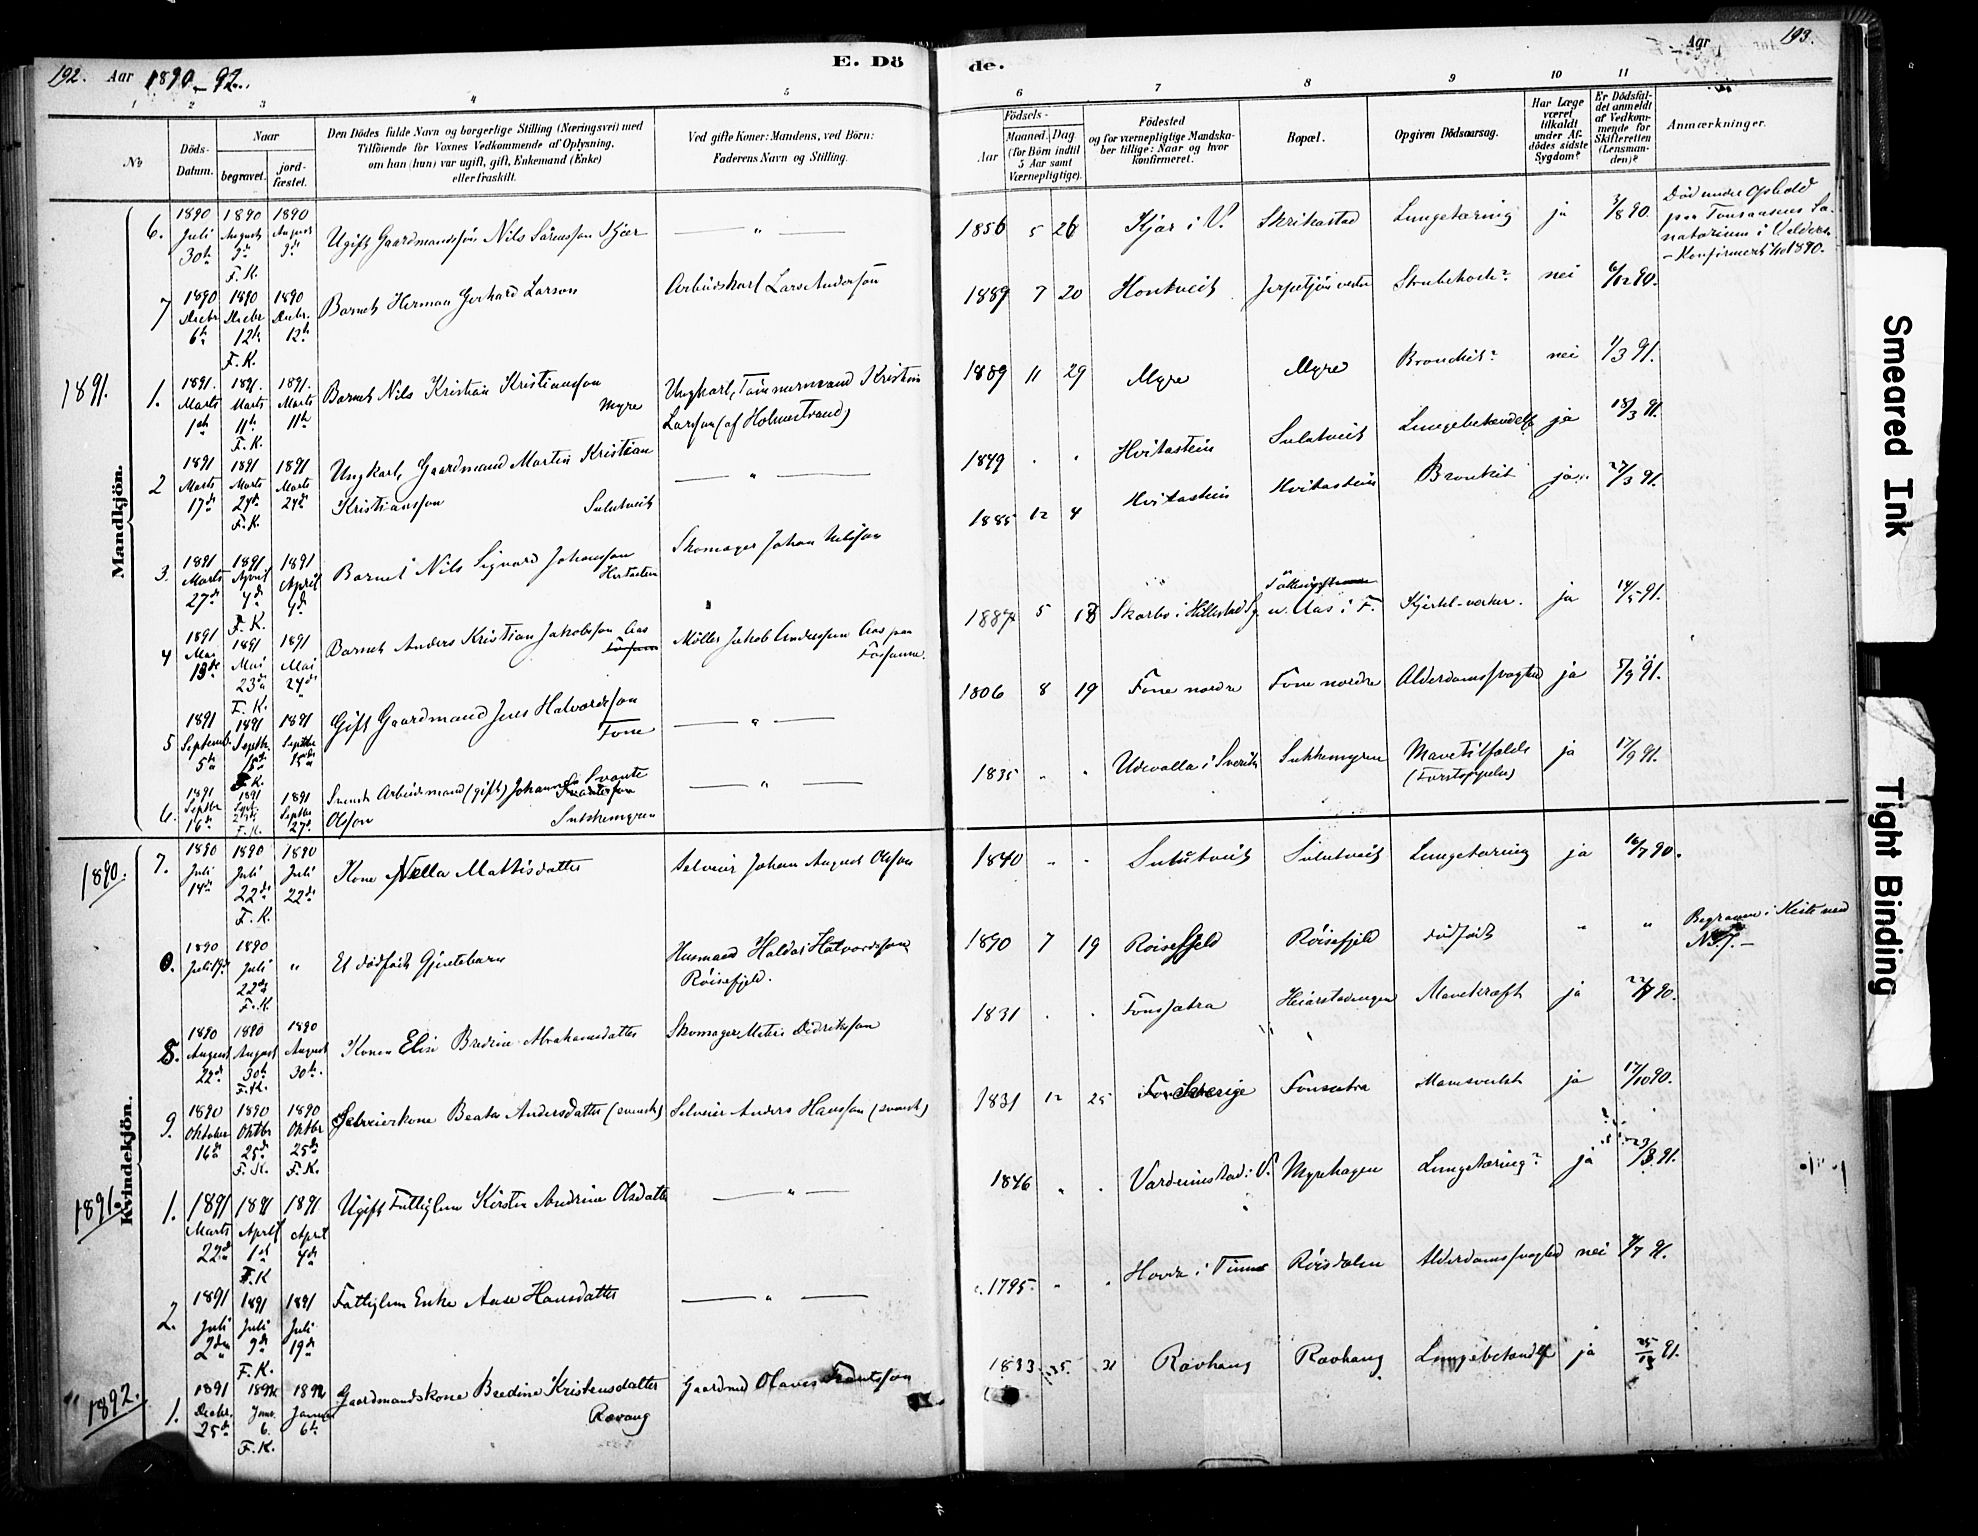 192. Aar 1890-92.
E. Dö
de.
Aar 193.
1 2 3 4 5 6 7 8 9 10 11
No
Döds-Datum.
Naar
begravet.
jord-fæstet.
Den Dödes fulde Navn og borgerlige Stilling (Næringsvei) med
Tilföiende for Voxnes Vedkommende af Oplysning,
om han (hun) var ugift, gift, Enkemand (Enke)
eller fraskilt.
Ved gifte Koner: Mandens, ved Börn:
Faderens Navn og Stilling.
Födsels-
Aar
Maaned. Dag
(for Börn indtil
5 Aar samt
Værnepligtige).
Födested
og for værnepligtige Mandska-
ber tillige: Naar og hvor
konfirmeret.
Bopæl.
Opgiven Dödsaarsag.
Har Læge
været
tilkaldt
under Af-
dödes sidste
Sygdom?
Er Dödsfal-
det anmeldt
af Vedkom-
mende for
Skifteretten
(Lensman-
den)?
Anmærkninger.
Mandkjön.
6. 1890 Juli 30te 1890 August 9de F.K. 1890 August 9de Ugift Gaardmandssön Nils Sörensson Kjær — " — 1856 5 26 Kjær i V. Skrikestad Lungetæring ja 3/8 90. Död under Ophold paa Tonsaasens Sanatorium i Valders
7 1890 Decbr 6te 1890 Decbr 12te F.K. 1890 Decbr. 12te Barnet Herman Gerhard Larson Arbeidskarl Lars Anderson 1889 7 20 Hontveit Strubehoste? nei 6/12 90.
1891.
1. 1891. Marts 1ste 1891. Marts 11te F.K. 1891. Marts 11te Barnet Nils Kristian Kristiansson Myre Ungkarl, Tömmermand Kristian Larsson (af Holmestrand) 1889 11 29 Myre Myre Bronchit? nei 1/3 91.
2 1891 Marts 17de 1891 Marts 24de F.K. 1891 Marts 24de Ungkarl, Gaardmand Martin Kristian Kristiansson Sulutveit — " — 1849 . . Hvitastein Sulutveit Lungebetændelse ja 18/3 91.
3. 1891 Marts 27de 1891 April 4de F.K. 1891 April 4de Barnet Nils Sigvard Johansson Skomager Johan Nilsson 1885 12 4 Hvitastein Hvitastein Bronkit ja 27/3 91.
4 1891 Mai 13de 1891 Mai 23de F.K. 1891 Mai 24de Barnet Anders Kristian Jakobsson Aas Möller Jakob Anderssen Aas paa 1887 5 18 Skarbo i Hillestad u. Aas i F. ja 14/5 91.
5 1891 Septemb. 5te 1891 Septbr. 15de F.K. 1891 Septbr 15de Gift Gaardmand Jens Halvorsson Fone — " — 1806 8 19 Fone nordre Fone nordre Alderdomssvaghed ja 5/9 91.
6. 1891 Septbr 16de 1891 Sept. F.K. 1891 Septbr 27de Svensk Arbeidsmand (gift) Johannes Svante Olsson Sukkemyren — " — 1835 " " Udevalla i Sverike Sukkemyren Mavetilfælde (Forstoppelse) ja 17/9 91.
Kvindekjön.
1890.
7. 1890 Juli 14de 1890 Juli 22de F.K. 1890 Juli 22de Kone Nella Mattisdatter Selveier Johan August Olsson 1840 " " Sulutveit Sulutveit Lungetæring ja 16/7 90.
0. 1890 Juli 19de 1890 Juli 22de F.K. " Et dödfödt Gjentebarn Husmand Haldor Halvordsson Röisefjeld. 1890 7 19 Röisefjeld Röisefjeld dödfödt " " Begraven i Kiste med No 7. —
8. 1890 August 22de 1890 August 30te F.K. 1890 August 30te. Konen Elise Bredine Abrahamsdatter Skomager Didriksson 1831 . . Fonssætra Mavekræft ja 90.
9. 1890 Oktober 16de 1890 Oktbr 25de F.K. 1890 Oktbr 25de F.K. Selveierkone Beata Andersdatter (svensk) Selveier Anders Hansson (svensk) 1831 12 25 Sverige Fonsætra ja 17/10 90.
1891.
1. 1891 Marts 22de 1891 April 1ste F.K. 1891 April 4de Ugift Fattiglem Kirsten Andrine Olsdatter — " — 1846 " . i V. Myrehagen Lungetæring? ja 23/3 91.
2. 1891 Juli 2den 1891 Juli 9de F.K. 1891 Juli 19de Fattiglem Enke Aase Hansdatter — " — c. 1795 " " Hovde i Röisdalen Alderdomssvaghed nei 4/7 91.
1892.
1. 1891 Decbr. 25de 1892 Janr. 6. F.K. 1892 Januar 6te Gaardmandskone Bredine Kristensdatter Ravang Gaardmd Olaves 1833 31 Ravhang Ravhang Lungebetændelse ja 91.
Smeared Ink
Tight Binding